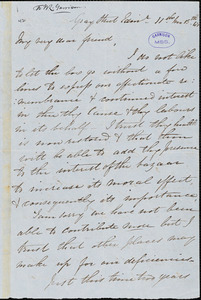 To Mr
Gray Street Edinr. 11th
My very dear friend,
I do not like
to let the box go without a few
lines to express my affectionate re-
membrance and continued interest
in this Cause & thy labours
in its behalf. I trust thy health
is now restored & that thou
wilt be able to add thy presence
to the interest of the bazaar
to increase its moral effect,
& consequently its importance.
I am sorry we have not been
able to contribute more but I
trust that other places may
make up for our deficiencies.
Just this time two years